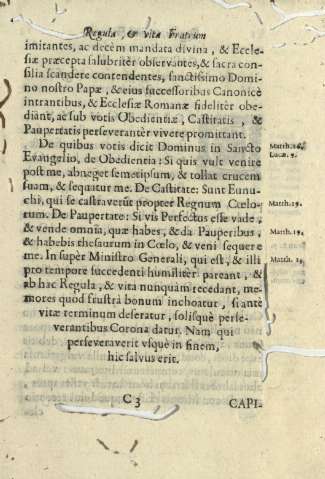 Regula, & vita Fratrum
imitantes, ac decèm mandata divina, & Eccle-
siæ præcepta salubritèr observantes, & sacra con-
silia scandere contendentes, sanctissimo Domi-
no nostro Papæ, & eius successoribus Canonicè
intrantibus, & Ecclesiæ Romanæ fidelitèr obe-
diant, ac sub votis Obedientiæ, Castitatis, &
Paupertatis perseverantèr vivere promittant.
De quibus votis dicit Dominus in Sancto
Evangelio, de Obedientia: Si quis vult venire Matth. 16.
post me, abneget semetipsum, & tollat crucem Lucæ. 9.
suam, & sequatur me. De Castitate: Sunt Eunu-
chi, qui se castraverũt propter Regnum Cœlo- Matth. 19.
rum. De Paupertate: Si vis Perfectus esse vade,
& vende omnia, quæ habes, & da Pauperibus, Matth. 19.
& habebis thesaurum in Cœlo, & veni sequere
me. In supèr Ministro Generali, qui est, & illi Matth. 19.
pro tempore succedenti humilitèr pareant, &
ab hac Regula, & vita nunquam recedant, me-
mores quod frustrà bonum inchoatur, si antè
vitæ terminum deseratur, solisquè perse-
verantibus Corona datur. Nam qui
perseveraverit vsquè in finem,
hic salvus erit.
C 3 CAPI-